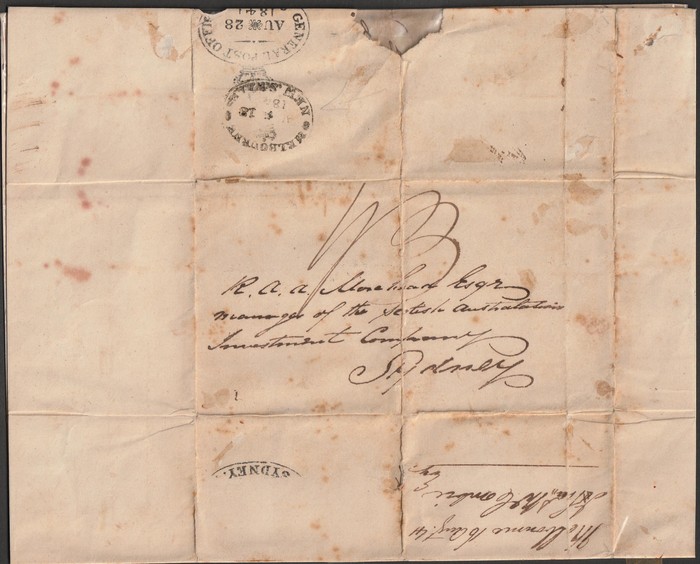 GENERAL POST OFFICE
AU 28
1841
MELBOURNE
18
1/3
R. A. A. Morehead Esqr
manager of the Scotish Australian
Investment Company
Sydney
SYDNEY.
Melbourne 16 Augt. 41